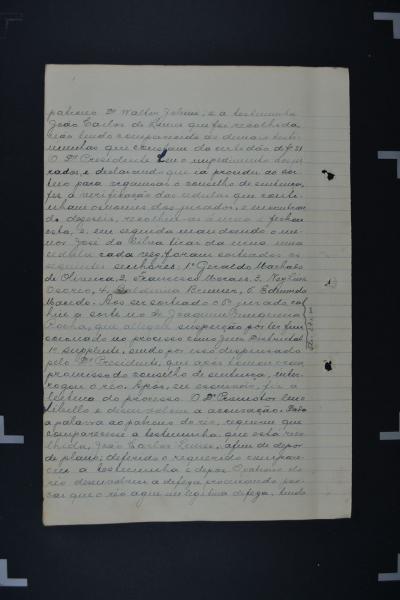 patrono Dr Walter Johnn, e a testemunha
João Carlos de Lima que foi recolhida,
não tendo comparecido as demais teste-
munhas que constam da certidão de fs 31
O Dr Presidente leu o impedimento dos ju-
rados, e declarando que ia proceder ao sor-
teio para organisar o conselho de sentença,
fez a verificação das cedulas que conti-
nham os nomes dos jurados, e encontran-
do dezeseis, recolheu-as á urna e fechou
esta, e, em seguida mandando o me-
nor José da Silva tirar da urna uma
cedula cada vez, foram sorteados os
seguintes senhores: 1º Geraldo Machado
de Oliveira, 2. Francisco Moraes, 3. Neptuno
Osorio, 4. Brenner, 5. Edmundo
Macedo. Aos ser sorteado o 6º jurado cal
hiu a sorte no Sr Joaquim
Rocha, que allegou suspeição por ter fun
cionado no processo como Juiz Districtal
1º supplente, sendo por isso dispensado
pelo Dr Presidente, que após tomou o com
promisso do conselho de sentença, inter-
rogou o réo. Após, eu escrivão, fiz a
leitura do processo. O Dr Promotor leu o
libello e desenvolveu a accusação. Dada
a palavra ao patrono do réo, requereu que
comparecesse a testemunha que está reco
lhida, João Carlos de Lima, afim de depor
de plano; deferido o requerido compare-
ceu a testemunha e depôz. O patrono do
réo desenvolveu a defeza procurando pro-
var que o réo agiu em legitima defeza. Sendo